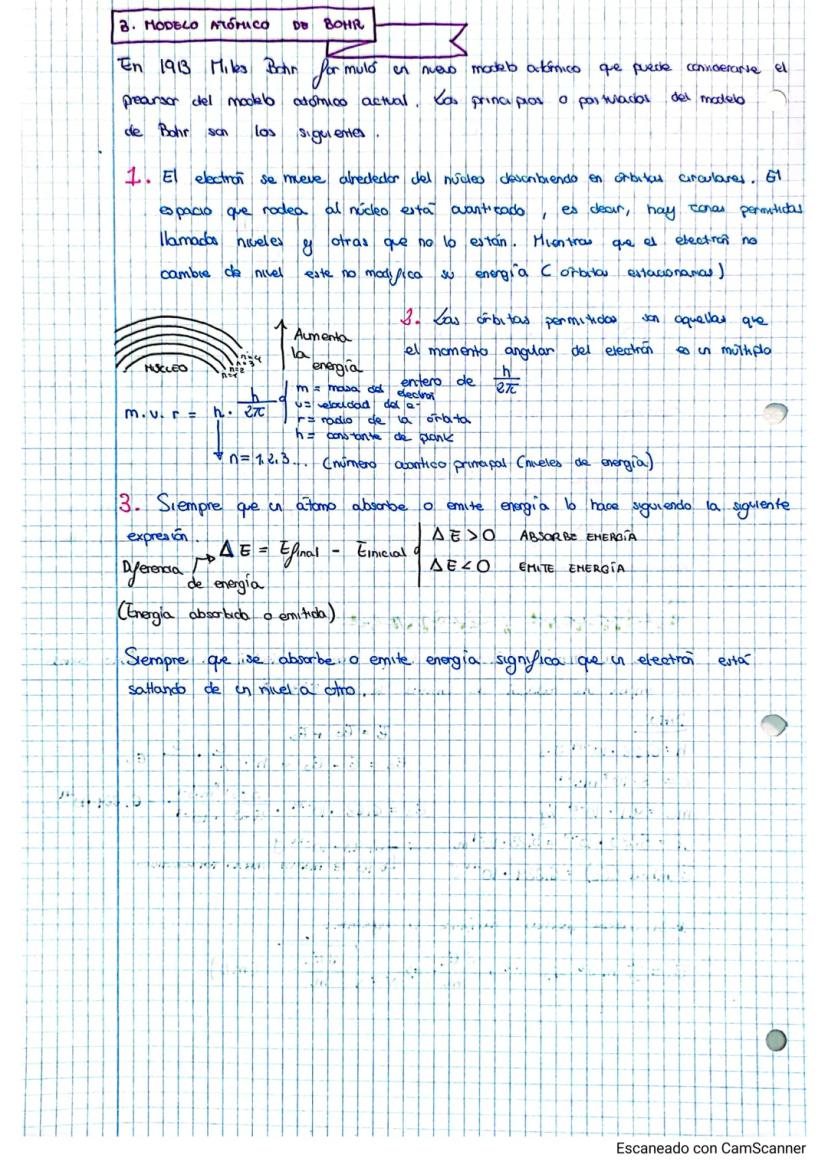 3. MODELO ATÓMICO DE BOHR
En 1913 Niles Bohr formuló un nuevo modelo atómico que puede considerarse el
precursor del modelo atómico actual. Los principios o postulados del modelo
de Bohr son los siguientes.
1. El electrón se mueve alrededor del núcleo describiendo en órbitas circulares. El
espacio que rodea al núcleo está cuantizado, es decir, hay zonas permitidas
llamadas niveles y otras que no lo están. Mientras que el electrón no
cambie de nivel este no modifica su energía (órbitas estacionarias)
NUCLEO
n=1
n=2
n=3
n=4
Aumenta
la
energía
2. Las órbitas permitidas son aquellas que
el momento angular del electrón es un múltiplo
entero de h/2π
m.v.r = n. h/2π
m = masa del electrón
v = velocidad del e-
r = radio de la órbita
h = constante de plank
n=1,2,3... (número cuántico principal (niveles de energía)
3. Siempre que un átomo absorbe o emite energía lo hace siguiendo la siguiente
expresión.
ΔE = Efinal - Einicial
ΔE>0 ABSORBE ENERGÍA
ΔE<0 EMITE ENERGÍA
Diferencia
de energía
(Energía absorbida o emitida)
Siempre que se absorbe o emite energía significa que un electrón está
saltando de un nivel a otro.
Escaneado con CamScanner